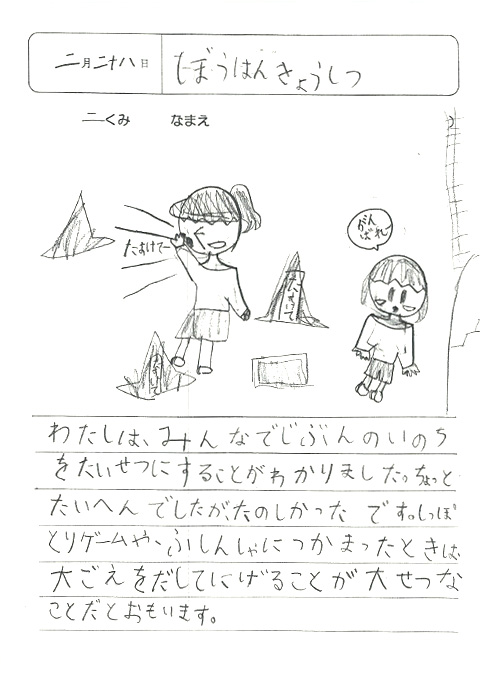 二月二十八日
ぼうはんきょうしつ
二くみ なまえ
たすけてー
がんばれ
たすけて
たすけて
わたしは、みんなでじぶんのいのち
をたいせつにすることがわかりました。ちょっと
たいへんでしたが、たのしかったです。しっぽ
とりゲームや、ふしんしゃにつかまったときは、
大ごえをだしてにげることが大せつな
ことだとおもいます。